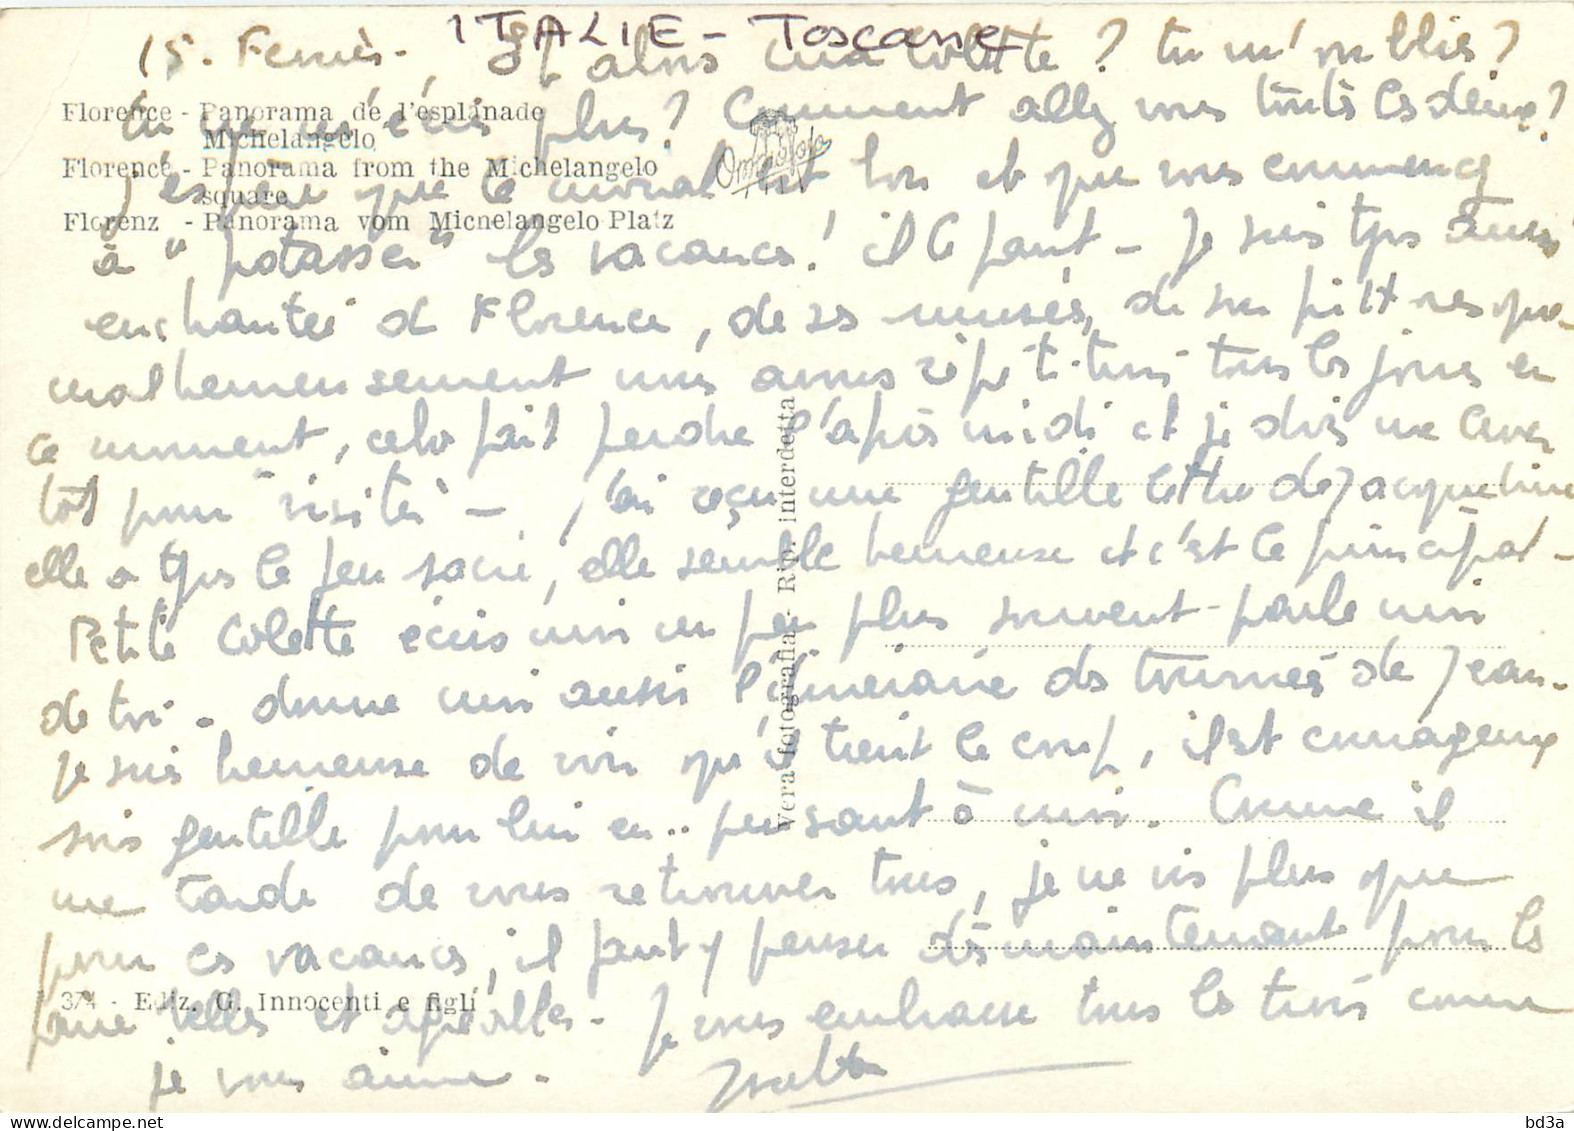 ITALIE - Toscane
15. Et alors ma Colette ? tu m'oublies ?
Florence - Panorama de l'esplanade
Michelangelo
Florence - Panorama from the Michelangelo
square
Florenz - Panorama vom Michelangelo Platz
tu ne m'écris plus ? Comment allez vous toutes les deux ?
J'espère que le moral est bon et que vous commencez
à "potasser" les vacances ! il le faut - Je suis tjrs aussi
enchantée de Florence, de ses musées, de ses peintres
malheureusement nous avons répétitions tous les jours en
ce moment, cela fait perdre l'après midi et je dois me lever
tôt pour visiter - J'ai reçu une gentille lettre de Jacqueline
elle a tjrs le feu sacré, elle semble heureuse et c'est le principal -
Petite Colette écris moi un peu plus souvent - parle moi
de toi - donne moi aussi l'itinéraire des tournées de Jean.
Je suis heureuse de voir qu'il tient le coup, il est courageux
sois gentille pour lui en.. pensant à moi. Comme il
me tarde de vous retrouver tous, je ne vis plus que
pour ces vacances, il faut y penser dès maintenant pour les
faire belles et agréables - Je vous embrasse tous les trois comme
je vous aime -
Vera fotografia - Rip. interdetta
374 - Ediz. G. Innocenti e figli